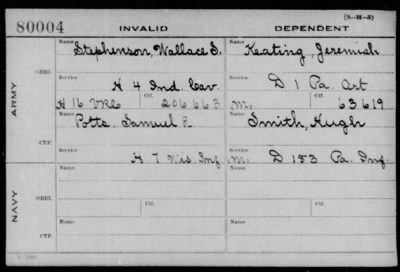 (3-H-5)
80004 INVALID DEPENDENT
Name Name
Stephenson, Wallace S. Keating, Jeremiah
ORIG. Service Service
H 4 Ind. Cav. D 1 Pa. Art
Ctf. Ctf.
H 16 VRC 206663 M. 63619
ARMY
Name Name
Potts, Samuel F. Smith, Hugh
CTF. Service Service
H 7 Wis Inf M. D 183 Pa. Inf.
Name Name
ORIG. Service Service
Ctf. Ctf.
NAVY
Name Name
CTF. Service Service